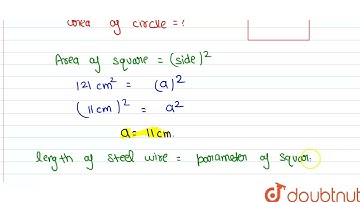 area of circle = ?
Area of square = (side)²
121 cm² = (a)²
(11 cm)² = a²
a = 11 cm.
length of steel wire = parameter of squar
doubtnut